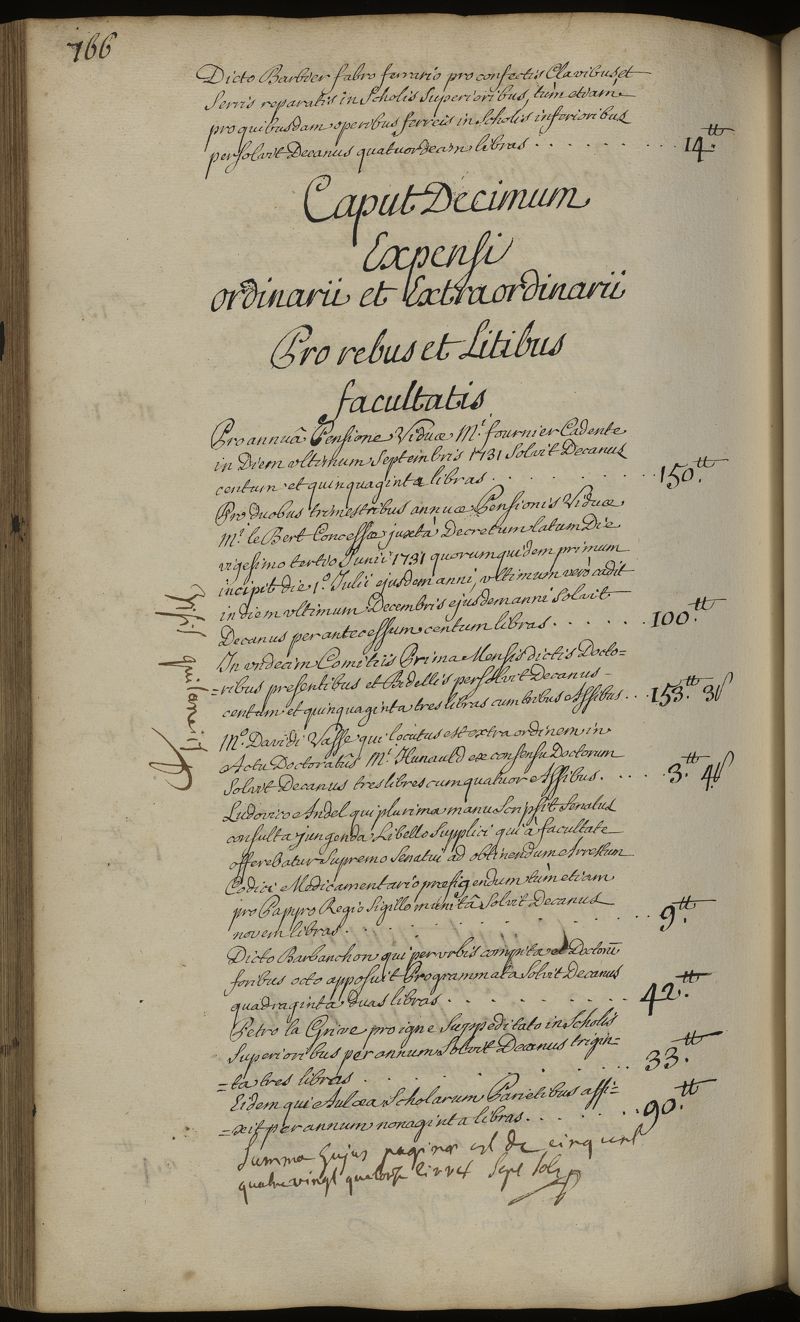 166
Dicto Barbier fabro ferrario pro confectis Clavibus et
Serris reparatis in Scholis Superioribus, tùm etiam
pro quibusdam operibus ferreis in Scholis inferioribus
persolvit Decanus quatuordecim libras . . . . . . . . . 14.tt
Caput Decimum
Expensi
ordinarii et Extraordinarii
Pro rebus et Litibus
facultatis
Pro annuâ Pensione Viduæ Mri. fournier Cadente
in Diem ultimum Septembris 1731 Solvit Decanus
centum et quinquaginta libras . . . . . . . . . 150.tt
Pro duobus trimestribus annuæ Pensionis Viduæ
Mri. le Bert Concessæ juxtà Decretum latum Die
vigesimo tertio Junii 1731 quorum quidem primum
incipit die 1.o Julii ejusdem anni, ultimum verò cadit
in diem ultimum Decembris ejusdem anni Solvit
Decanus per antecessum centum libras . . . . . . 100.tt
In undecim Comitiis Prima Mensis dictis Docto=
=ribus presentibus et Bidellis persolvit Decanus
centum et quinquaginta tres libras cum tribus Assibus . . . 153.tt 3ſ
Mo. Davidi Vasse qui locutus est extra ordinem in
Actu Doctoratûs Mri. Hunauld ex consensu Doctorum
Solvit Decanus tres libres cum quatuor Assibus . . . . . 3.tt 4ſ
Ludovico Andel qui plurima manu Scripsit Senatus
consulta jungenda Libello Supplici qui à facultate
offerebatur Supremo Senatui ad obtinendum Arrestum
Codici Medicamentario præfigendum tùm etiam
pro Papyro Regio Sigillo munitâ Solvit Decanus
novem libras . . . . . . . . . 9.tt
Dicto Barbanchon qui per urbis compita et Doctorū
foribus octo apposuit Programmata Solvit Decanus
quadraginta duas libras . . . . . . . . . 42.tt
Petro la Grive pro igne Suppeditato in Scholis
Superioribus per annum Solvit Decanus trigin=
=ta tres libras . . . . . . . . . 33.tt
Eidem qui Aulæa Scholarum Parietibus affi=
=xit per annum nonaginta libras . . . . . . . 90.tt
Summa hujus paginæ est de cinq cent
quatre vingt quatorze livres Sept sols